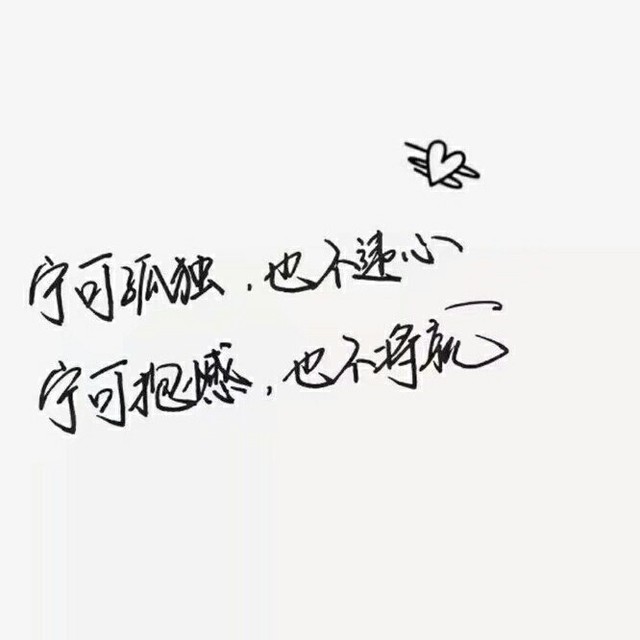 宁可孤独，也不违心
宁可抱憾，也不将就